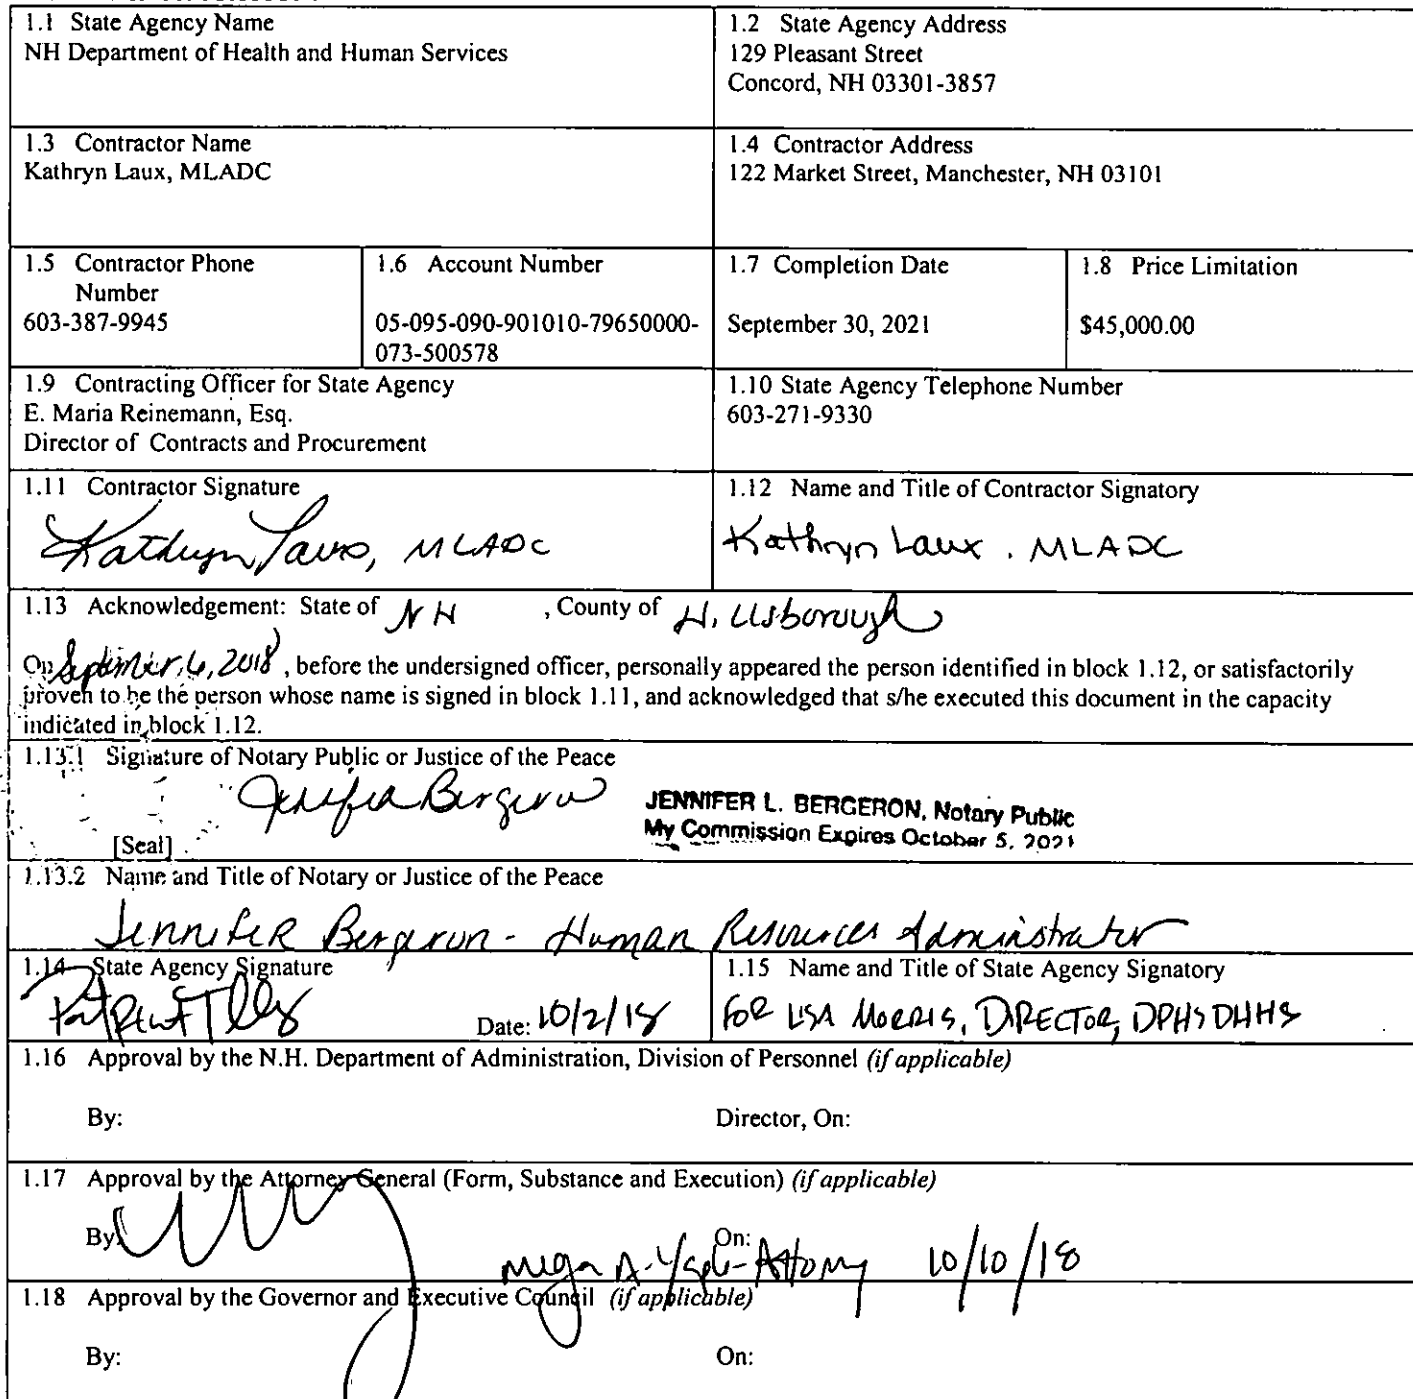 1.1 State Agency Name
NH Department of Health and Human Services
1.2 State Agency Address
129 Pleasant Street
Concord, NH 03301-3857
1.3 Contractor Name
Kathryn Laux, MLADC
1.4 Contractor Address
122 Market Street, Manchester, NH 03101
1.5 Contractor Phone
Number
603-387-9945
1.6 Account Number
05-095-090-901010-79650000-
073-500578
1.7 Completion Date
September 30, 2021
1.8 Price Limitation
$45,000.00
1.9 Contracting Officer for State Agency
E. Maria Reinemann, Esq.
Director of Contracts and Procurement
1.10 State Agency Telephone Number
603-271-9330
1.11 Contractor Signature
Kathryn Laux, MLADC
1.12 Name and Title of Contractor Signatory
Kathryn Laux, MLADC
1.13 Acknowledgement: State of NH , County of Hillsborough
On September 6, 2018, before the undersigned officer, personally appeared the person identified in block 1.12, or satisfactorily
proven to be the person whose name is signed in block 1.11, and acknowledged that s/he executed this document in the capacity
indicated in block 1.12.
1.13.1 Signature of Notary Public or Justice of the Peace
Jennifer Bergeron
JENNIFER L. BERGERON, Notary Public
My Commission Expires October 5, 2021
[Seal]
1.13.2 Name and Title of Notary or Justice of the Peace
Jennifer Bergeron - Human Resources Administrator
1.14 State Agency Signature
Date: 10/2/18
1.15 Name and Title of State Agency Signatory
FOR LISA MORRIS, DIRECTOR, DPHS DHHS
1.16 Approval by the N.H. Department of Administration, Division of Personnel (if applicable)
By: Director, On:
1.17 Approval by the Attorney General (Form, Substance and Execution) (if applicable)
By: On:
Attorney 10/10/18
1.18 Approval by the Governor and Executive Council (if applicable)
By: On: